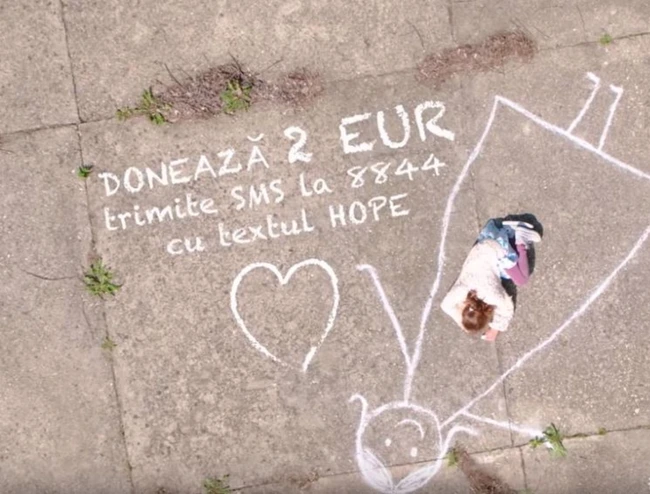 DONEAZĂ 2 EUR
trimite SMS la 8844
cu textul HOPE